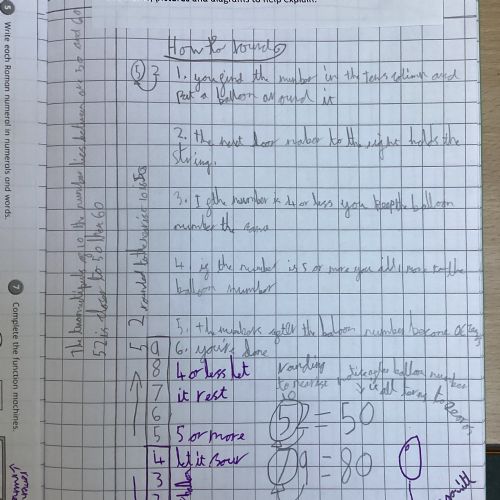 pictures and diagrams to help explain.
How to round
52
1. you find the number in the tens column and
put a balloon around it
2. the next door nabor to the right holds the
string.
3. If the number is 4 or less you keep the balloon
number the same
4 if the number is 5 or more you add 1 more to the
balloon number
5. the numbers after the balloon number become
6. you're done
rounding
to nearest
10
balloon number
is all turns to zeros
9
8
7
6
5
4
3
4 or less let
it rest
5 or more
let it soar
52 = 50
79 = 80
The two multiples of 10 the number lies between are 50 and 60
52 is closer to 50 than 60
52 rounded to the nearest 10 is 50
5 Write each Roman numeral in numerals and words.
7 Complete the function machines.